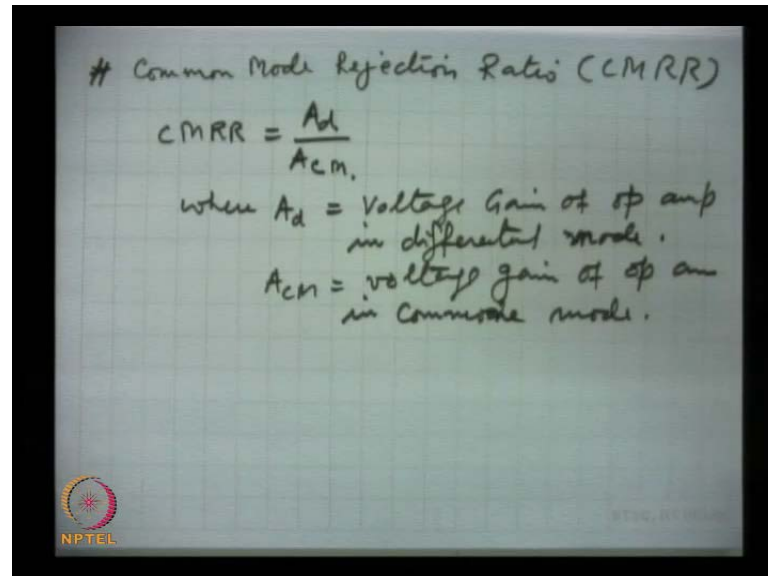 # Common Mode Rejection Ratio (CMRR)
CMRR = Ad / ACM.
where Ad = Voltage Gain of op amp
in differental mode.
ACM = voltage gain of op am
in Commone mode.
NPTEL